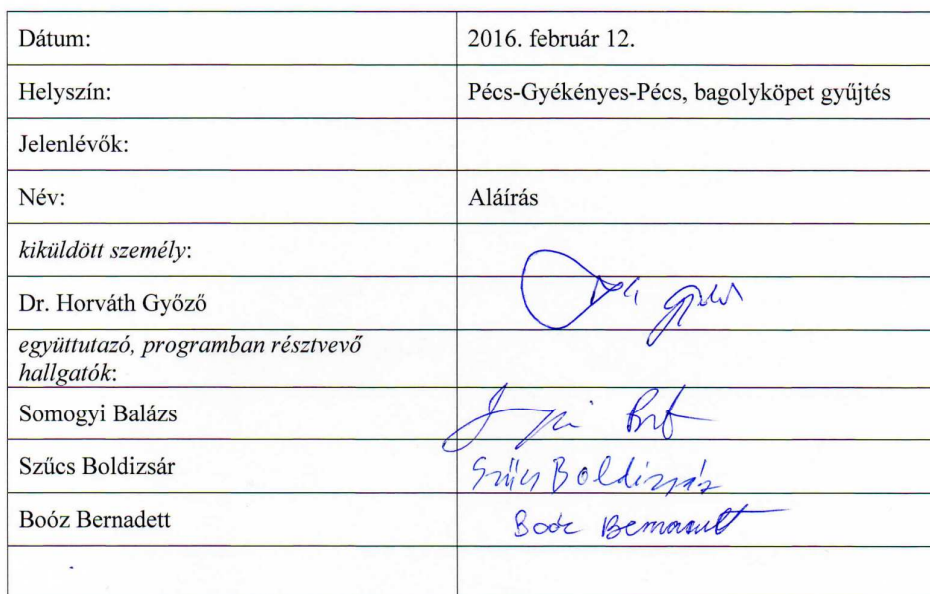 Dátum: 2016. február 12.
Helyszín: Pécs-Gyékényes-Pécs, bagolyköpet gyűjtés
Jelenlévők:
Név: Aláírás
kiküldött személy:
Dr. Horváth Győző
együttutazó, programban résztvevő
hallgatók:
Somogyi Balázs
Szűcs Boldizsár Szűcs Boldizsár
Boóz Bernadett Boóz Bernadett